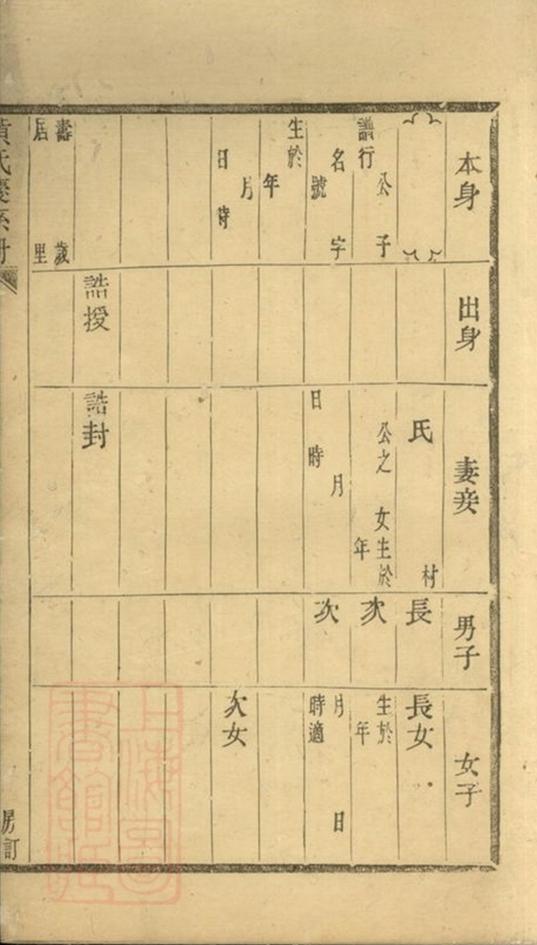 本身
諱行 公 子
名 字
號
生於
年
月
日 時
壽 歲
居 里
出身
誥授
妻妾
氏 村
公之 女生於
年
月
日 時
誥封
男子
長
次
次
女子
長女
生於
年
月 日
時適
次女
黃氏慶系冊
房訂